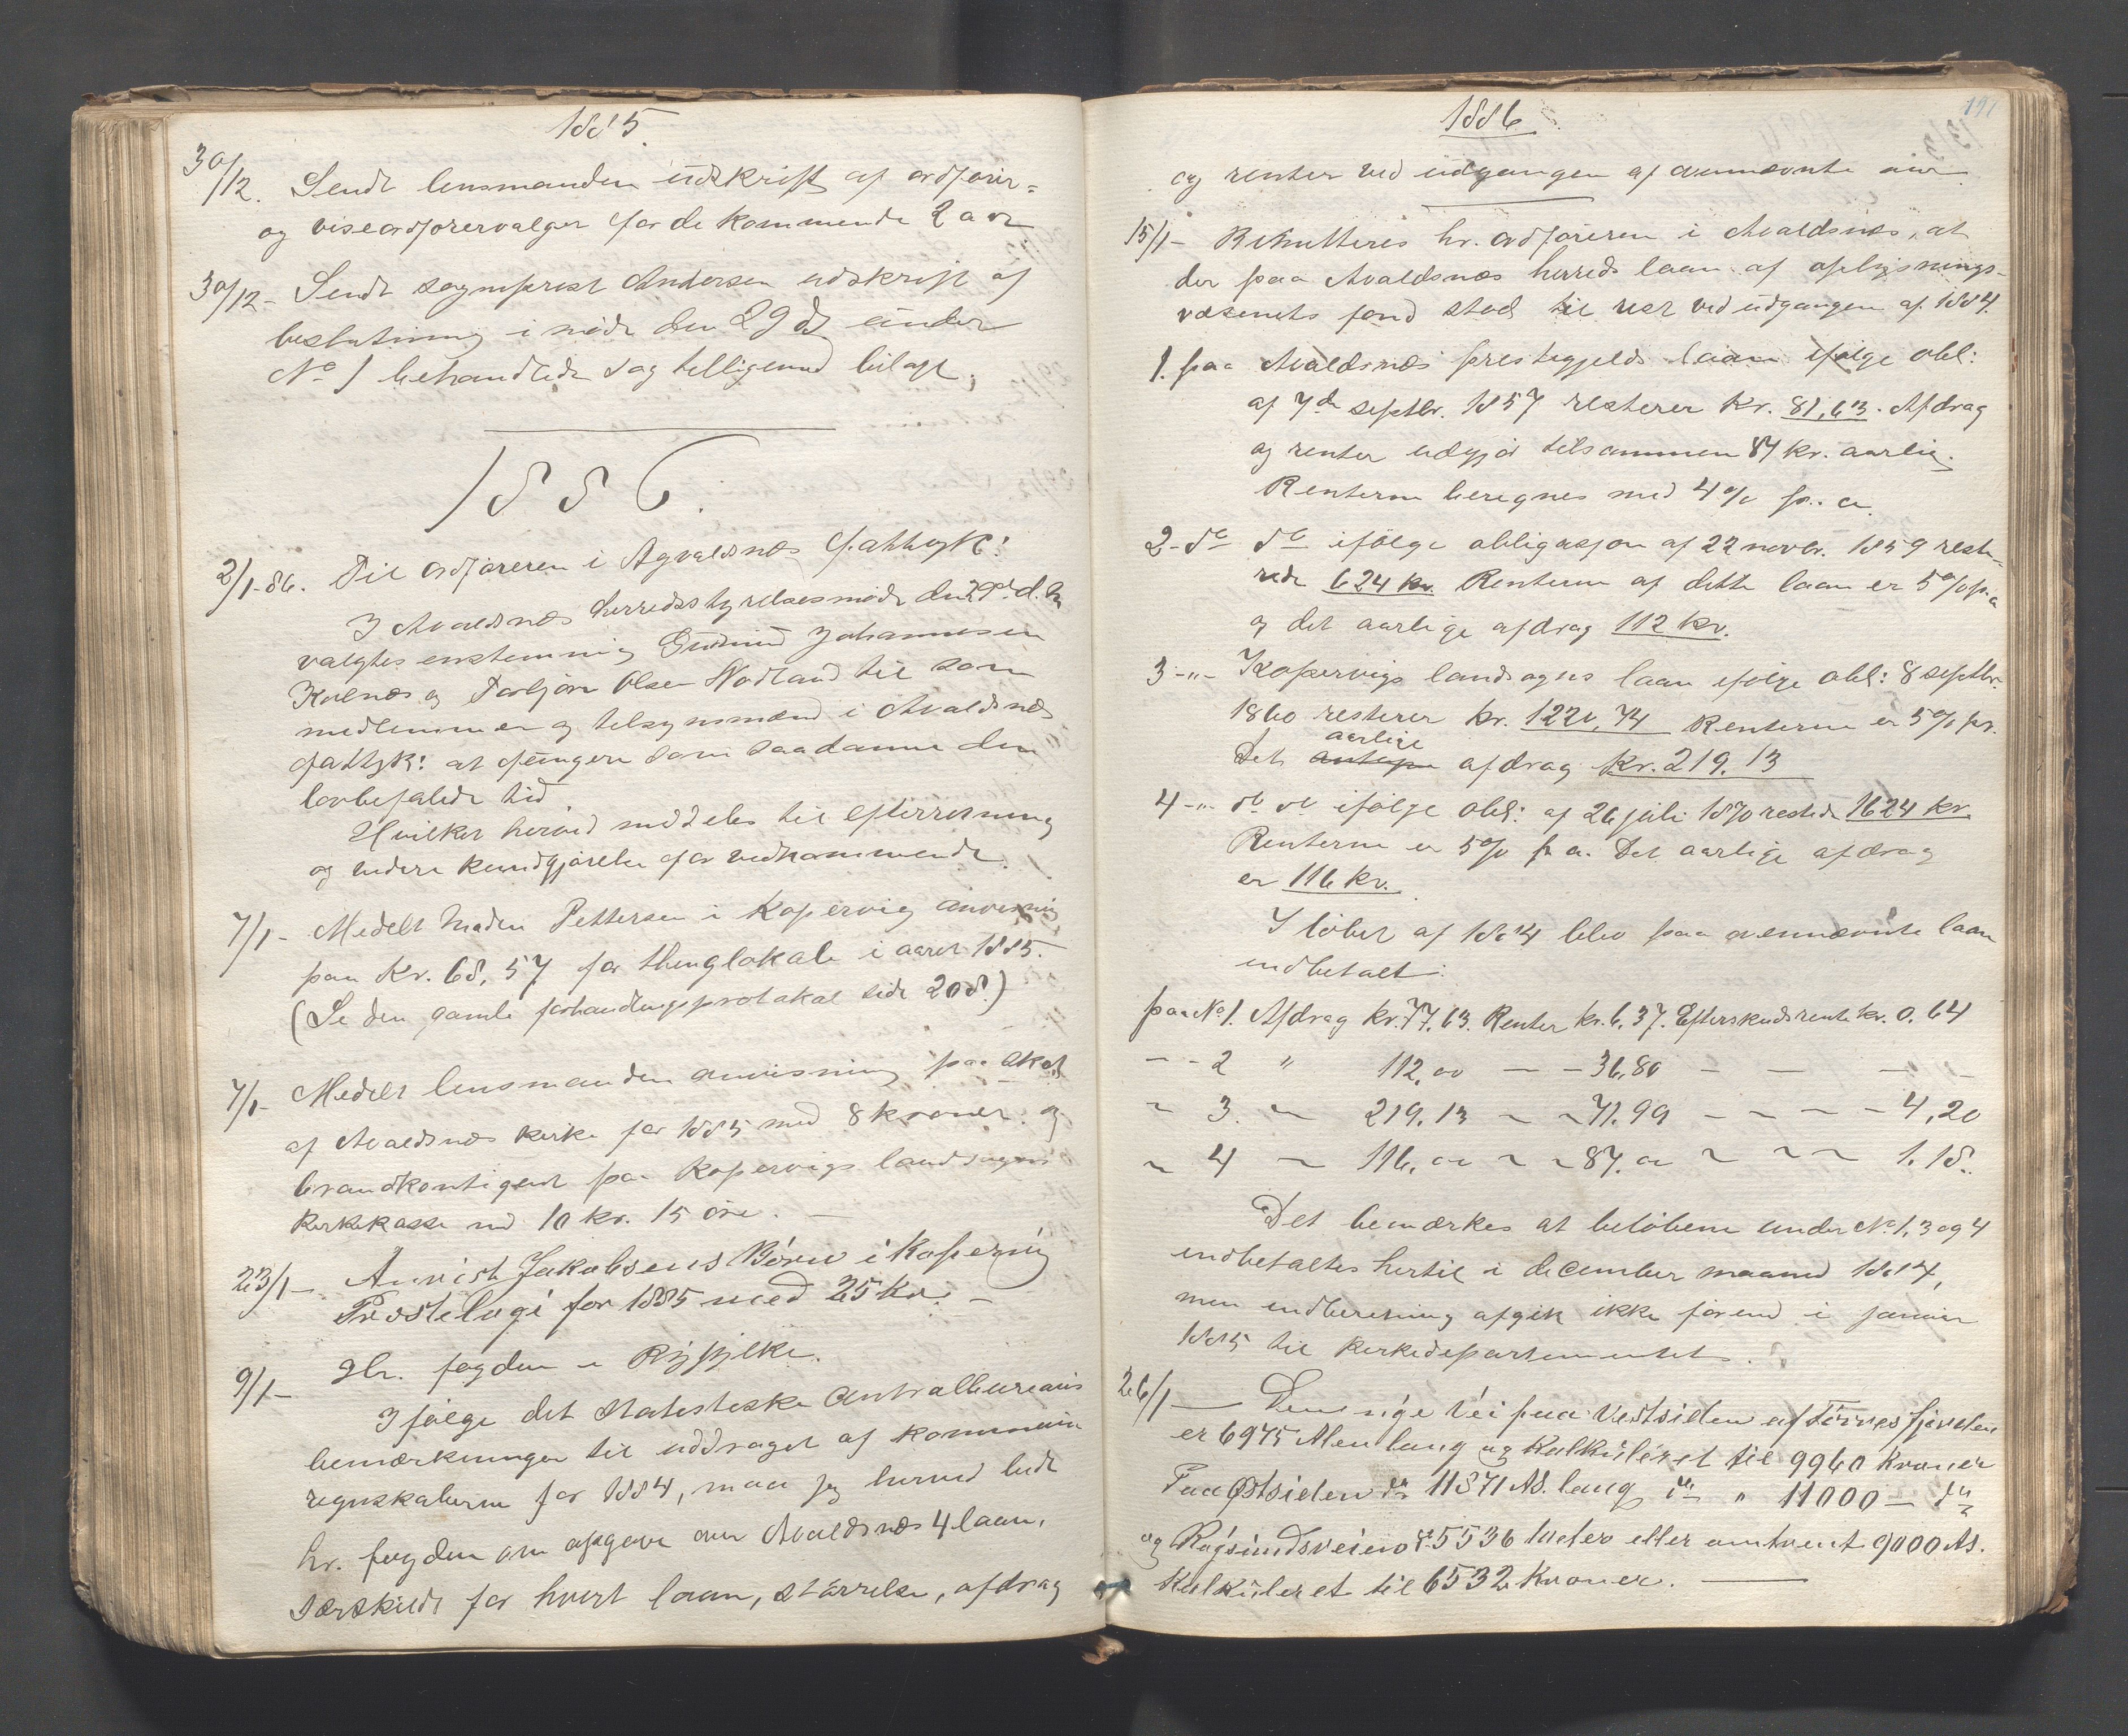 1885.
30/12. Sendt lensmanden udskrift af ordfører-
og viseordførervalget for de kommende 2 aar
30/12- Sendt sogneprest Andersen udskrift af
beslutning i møde den 29 ds under
No 1 behandlede sag telligemed bilage,
1886.
2/1-86. Til ordføreren i Agvaldsnæs fattigk:
I Avaldsnæs herredsstyrelsesmøde den d. m
valgtes enstemmig Gudmund Johannesen
Kolnæs og Torbjørn Olsen Nodland til som
medlemmer og tilsynsmænd i Avaldsnæs
fattigk: at fungere som saadanne den
lovbefalede tid.
Hvilket herved meddeles til efterretning
og videre kundgjørelse for vedkommende.
7/1- Medelt Madm Pettersen i Kopervig anvisning
paa Kr. 68,57 for thinglokale i aaret 1885.
(Se den gamle forhandlingsprotokol side 208.)
7/1- Medelt lensmanden anvisning paa
af Avaldsnæs kirke for 1885 med 8 kroner og
brandkontigent paa Kopervigs landsogns
kirkekasse med 10 kr. 15 øre. —
23/1- Anvist Jakobsens Børn i Kopervig
Prestelogi for 1885 med 25 Kr. —
9/1- Hr. fogden i Ryfylke.
Ifølge det statistiske Centralbureaus
bemærkninger til uddraget af kommune
regnskaberne for 1884, maa jeg herved bede
hr. fogden om opgave over Avaldsnæs 4 laan,
særskildt for hvert laan, størrelse, afdrag
1886
191
og renter ved udgangen af ovennævnte aar
15/1- Remitteres hr. ordføreren i Avaldsnæs, at
der paa Avaldsnæs herreds laan af oplysnings-
væsenets fond stod til rest ved udgangen af 1884.
1. paa Avaldsnæs prestegjelds laan ifølge obl:
af 7de septbr. 1857 resterer kr. 81,63. Afdrag
og renter udgjør tilsammen 84 kr. aarlig.
Renterne beregnes med 4% pr. a.
2- do do ifølge obligasjon af 22 novbr. 1859 reste-
rede 624 kr. Renterne af dette laan er 5% p. a
og det aarlige afdrag 112 kr.
3-"- Kopervigs landsogns laan ifølge obl: 8 septbr.
1860 resterer kr. 1220,74 Renterne er 5% pr.
aarlige
Det afdrag kr. 219.13
4-"- do do ifølge obl: af 26 juli 1870 restede 1624 kr.
Renterne er 5% pr a. Det aarlige afdrag
er 116 kr.
I løbet af 1884 blev paa ovennævnte laan
indbetalt:
paa No 1. Afdrag kr. 77,63. Renter kr. 6,37. Efterskudsrente kr. 0.64
- - 2 " 112,00 — - 36,80 - - - -
~ 3. ~ 219.13 ~ ~ 71.99 - - ~ - 4,20
~ 4 ~ 116,00 ~ ~ 87.00 ~ ~ ~ 1.18.
Det bemærkes at beløbene under No 1, 3 og 4
indbetaltes hertil i december maaned 1884,
men indberetning afgik ikke førend i januar
1885 til Kirkedepartementet.
26/1 — Den nye Vei paa Vestsiden af Førresfjorden
er 6975 Alen lang og Kalkuleret til 9960 Kroner
Paa Østsiden do 11871 Al. lang do " 11000 — do
og Røgsundsveien 5536 Meter eller omtrent 9000 Al.
Kalkuleret til 6532 Kroner. —